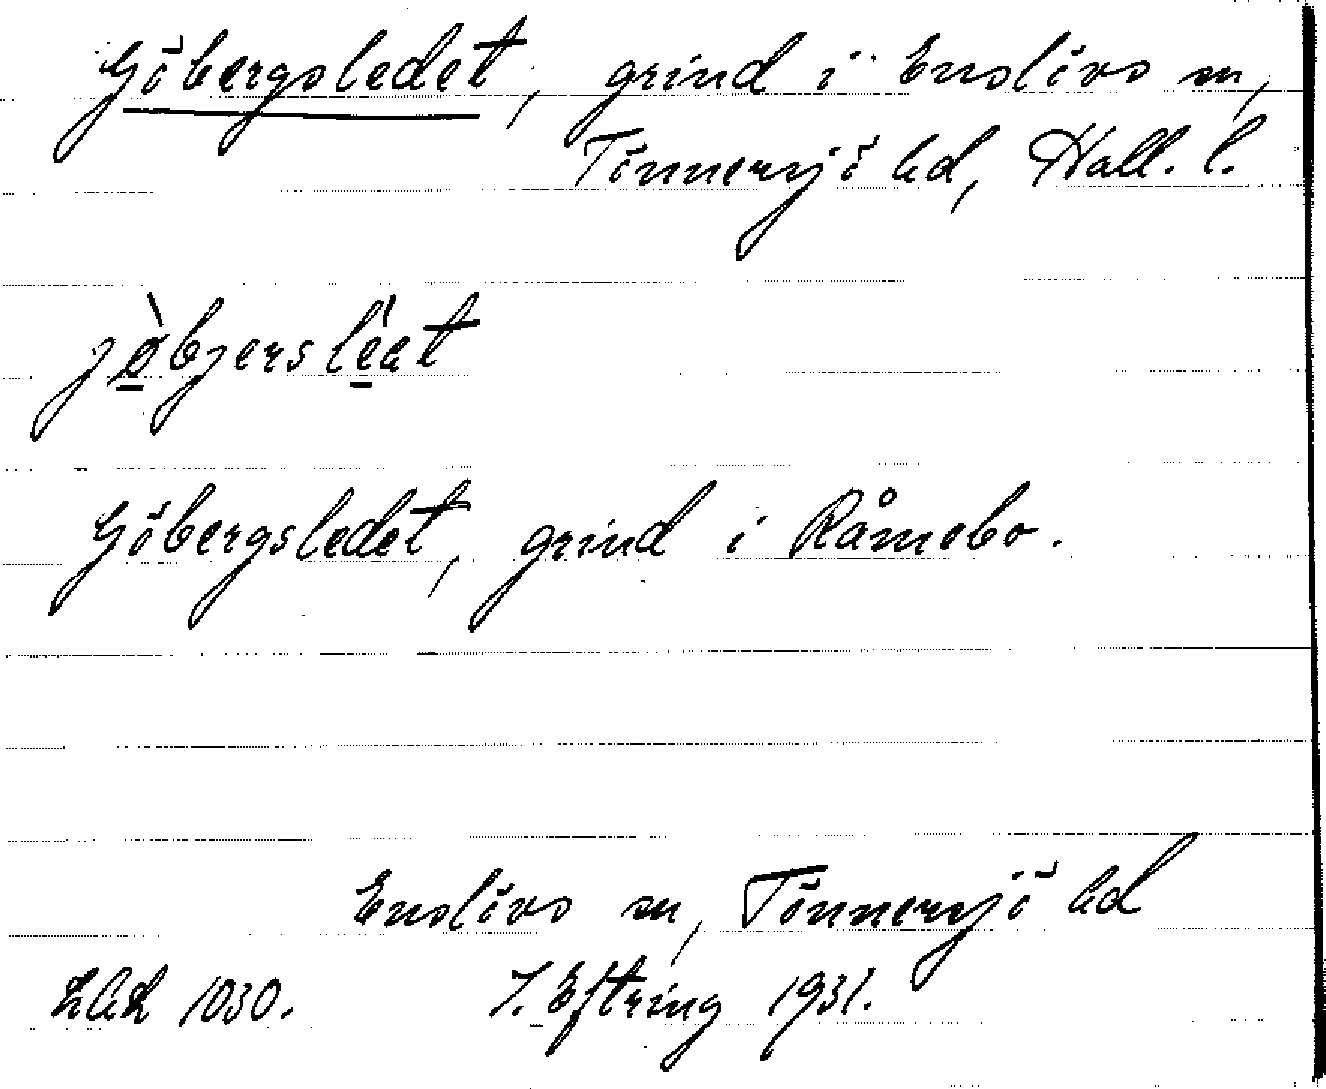 Göbergsledet, grind i Enslövs sn,
Tönnersjö hd, Hall. l.
jø̠̀bjersle̠̍at
Göbergsledet, grind i Råmebo.
Enslövs sn, Tönnersjö hd
LUL 1030. J. Eftring 1931.